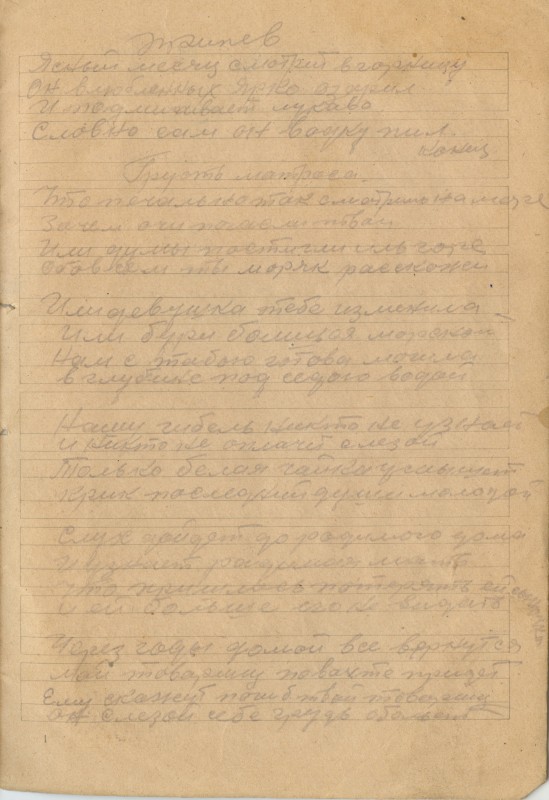 Припев
Ясный месяц смотрит в горницу
Он влюбленных ярко озорил
И подмигивает лукаво
Словно сам он водку пил.
конец
Грусть матроса.
Что печально так смотришь на море
Зачем очи твои
Или думы постигли иль горе
Обо всем ты моряк расскажи
Или девушка тебе изменила
Или бури боишься морской
Нам с табою готова могила
в глубине под седою водой
Нашу гибель никто не узнает
и никто не оплачет слезой
Только белая чайка услышит
крик последний души молодой
Слух дойдет до родимого дома
И узнает родимая мать
что пришлось потерять ей сыночка
и ей больше его не видать
Через годы домой все вернутся
мой товарищ по вахте придет
Ему скажут погиб твой товарищ
он слезой себе грудь обольет